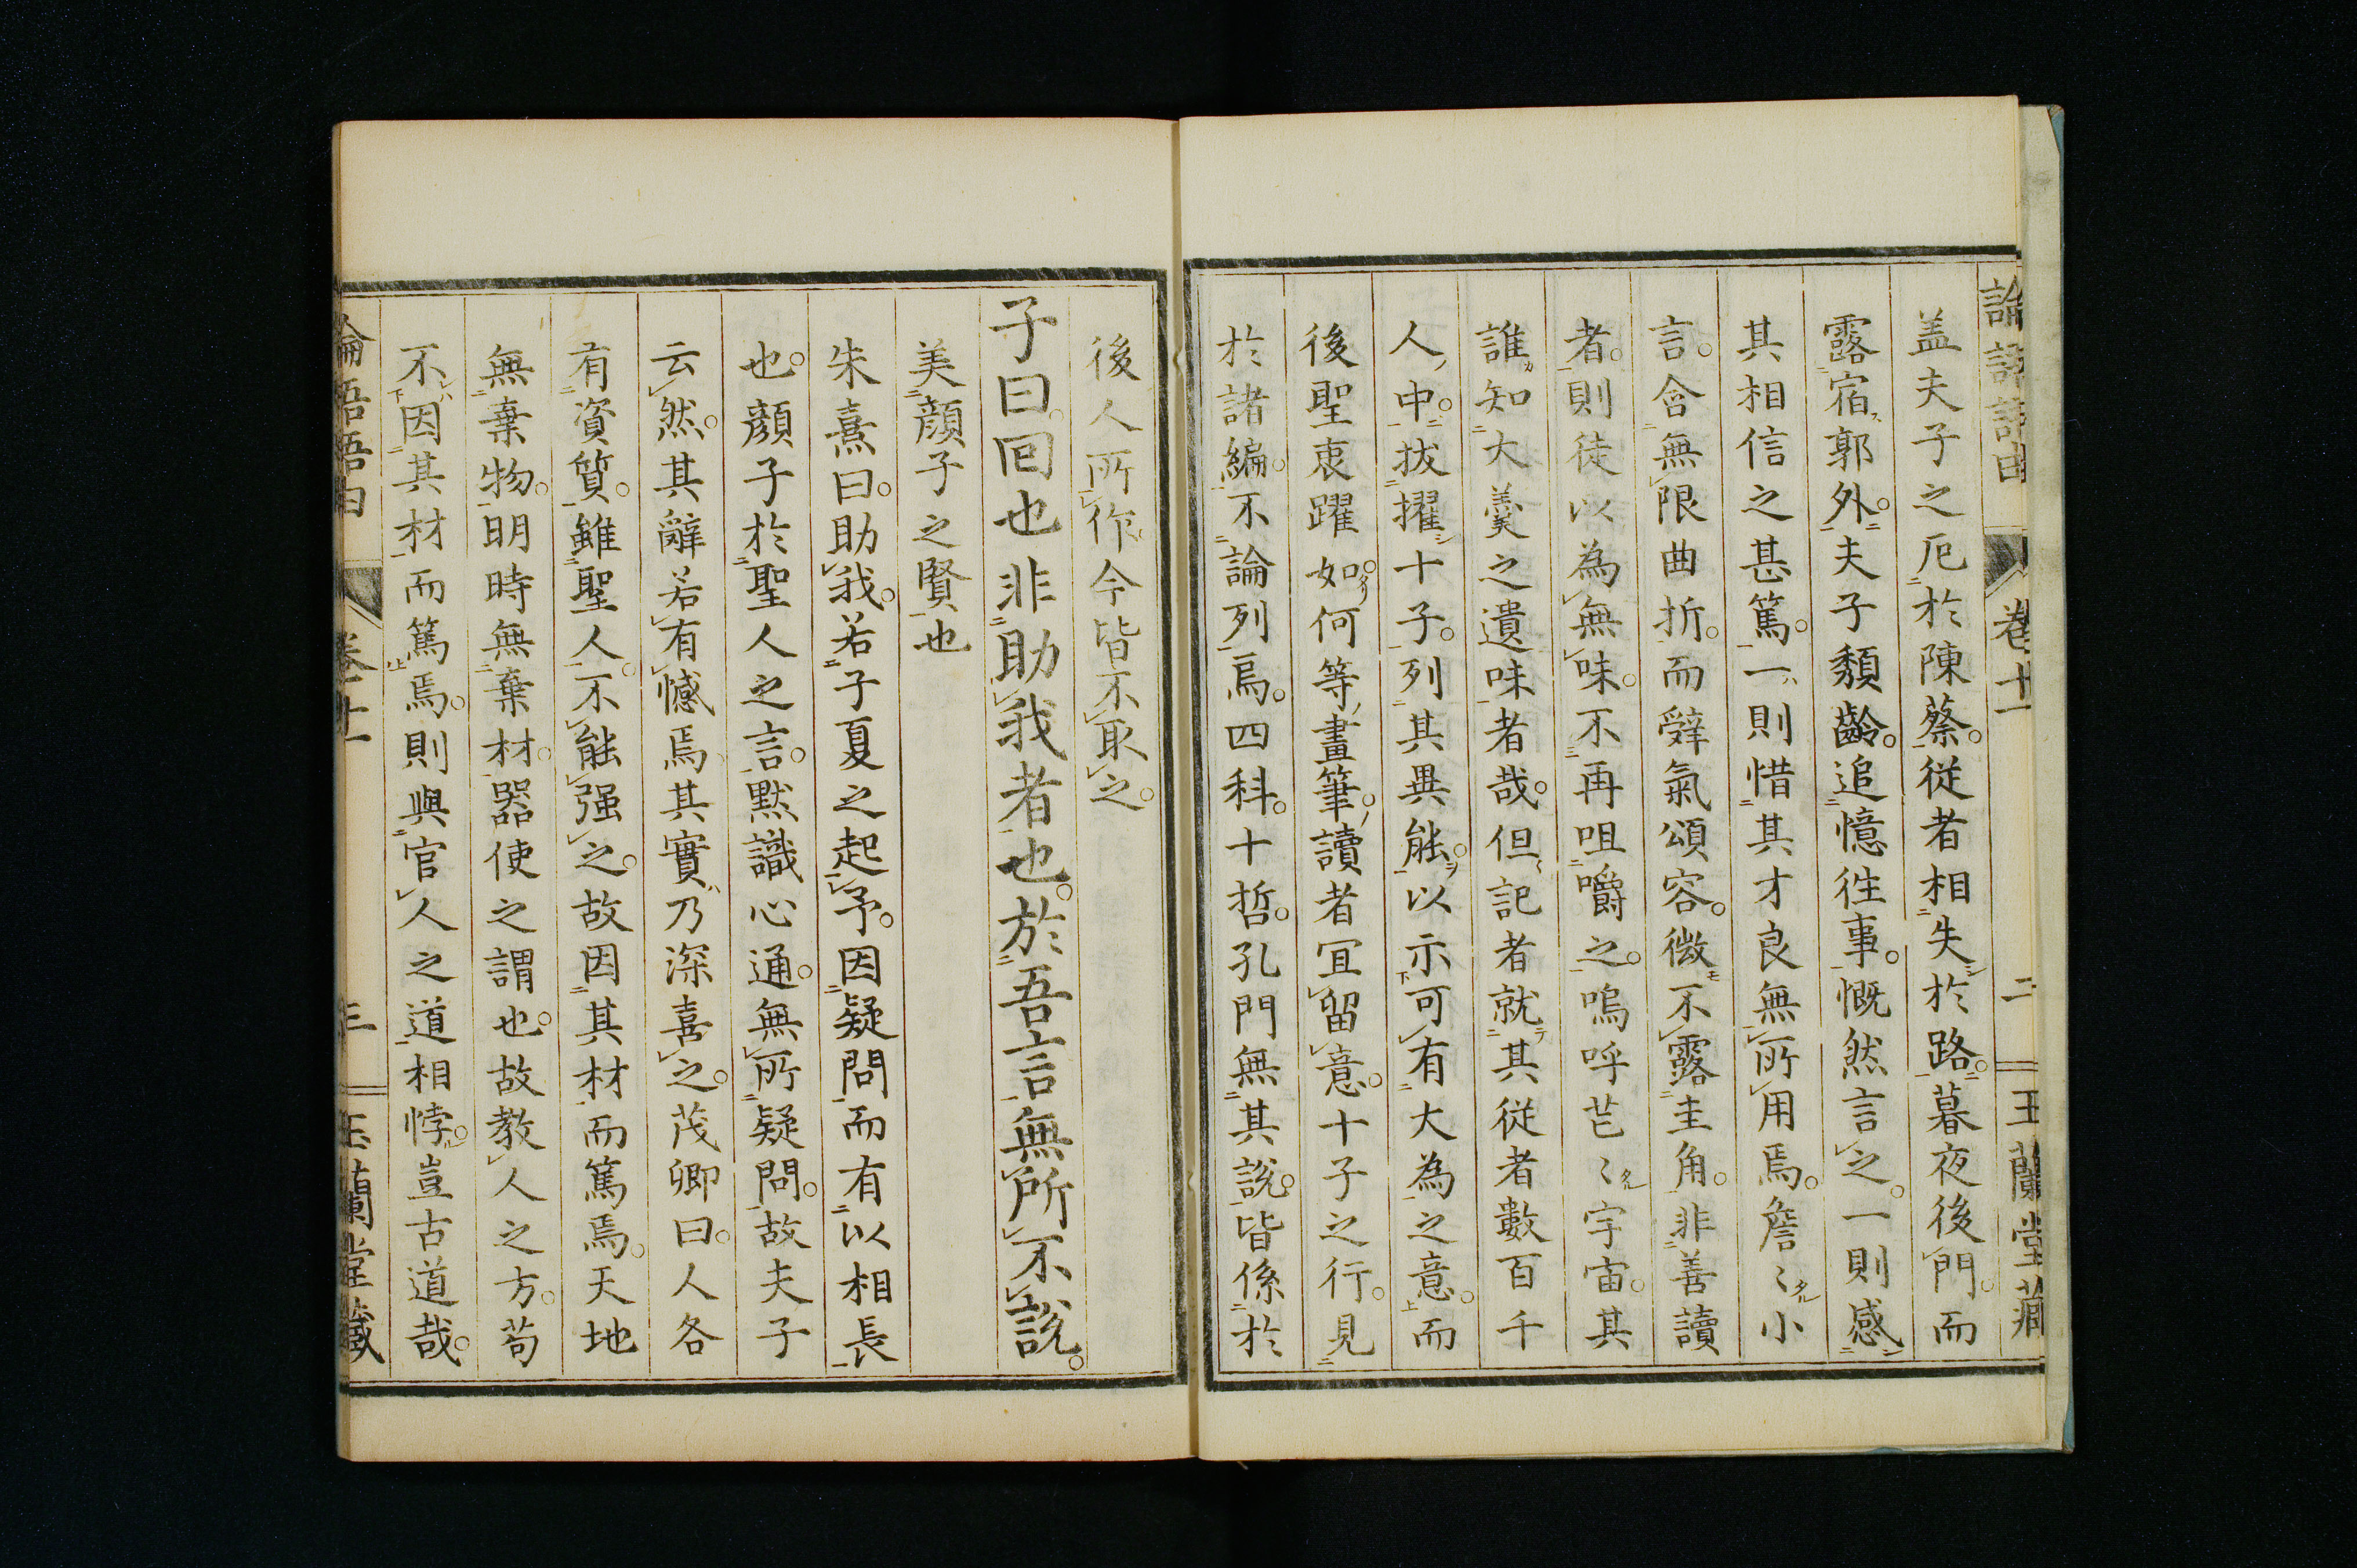 論語語由 卷十一 二 玉蘭堂藏
盖夫子之厄於陳蔡。從者相失於路。暮夜後門。而
露宿郭外。夫子頽齡。追憶徃事。慨然言之。一則感
其相信之甚篤。一則惜其才良無所用焉。詹〻小
言。含無限曲折。而辭氣頌容。微不露圭角。非善讀
者。則徒以為無味。不再咀嚼之。嗚呼芒〻宇宙。其
誰知大羹之遺味者哉。但記者就其從者數百千
人中。拔擢十子。列其異能。以示可有大為之意。而
後聖衷躍如。何等畫筆。讀者宜留意。十子之行。見
於諸編。不論列焉。四科。十哲。孔門無其說。皆係於
後人所作。今皆不取之。
子曰。回也非助我者也。於吾言無所不說。
美顔子之賢也
朱熹曰。助我。若子夏之起予。因疑問而有以相長
也。顔子於聖人之言。默識心通。無所疑問。故夫子
云然。其辭若有憾焉。其實乃深喜之。茂卿曰。人各
有資質。雖聖人。不能强之。故因其材而篤焉。天地
無棄物。明時無棄材。器使之謂也。故教人之方。苟
不因其材而篤焉。則與官人之道相悖。豈古道哉。
論語語由 卷十一 三 玉蘭堂藏